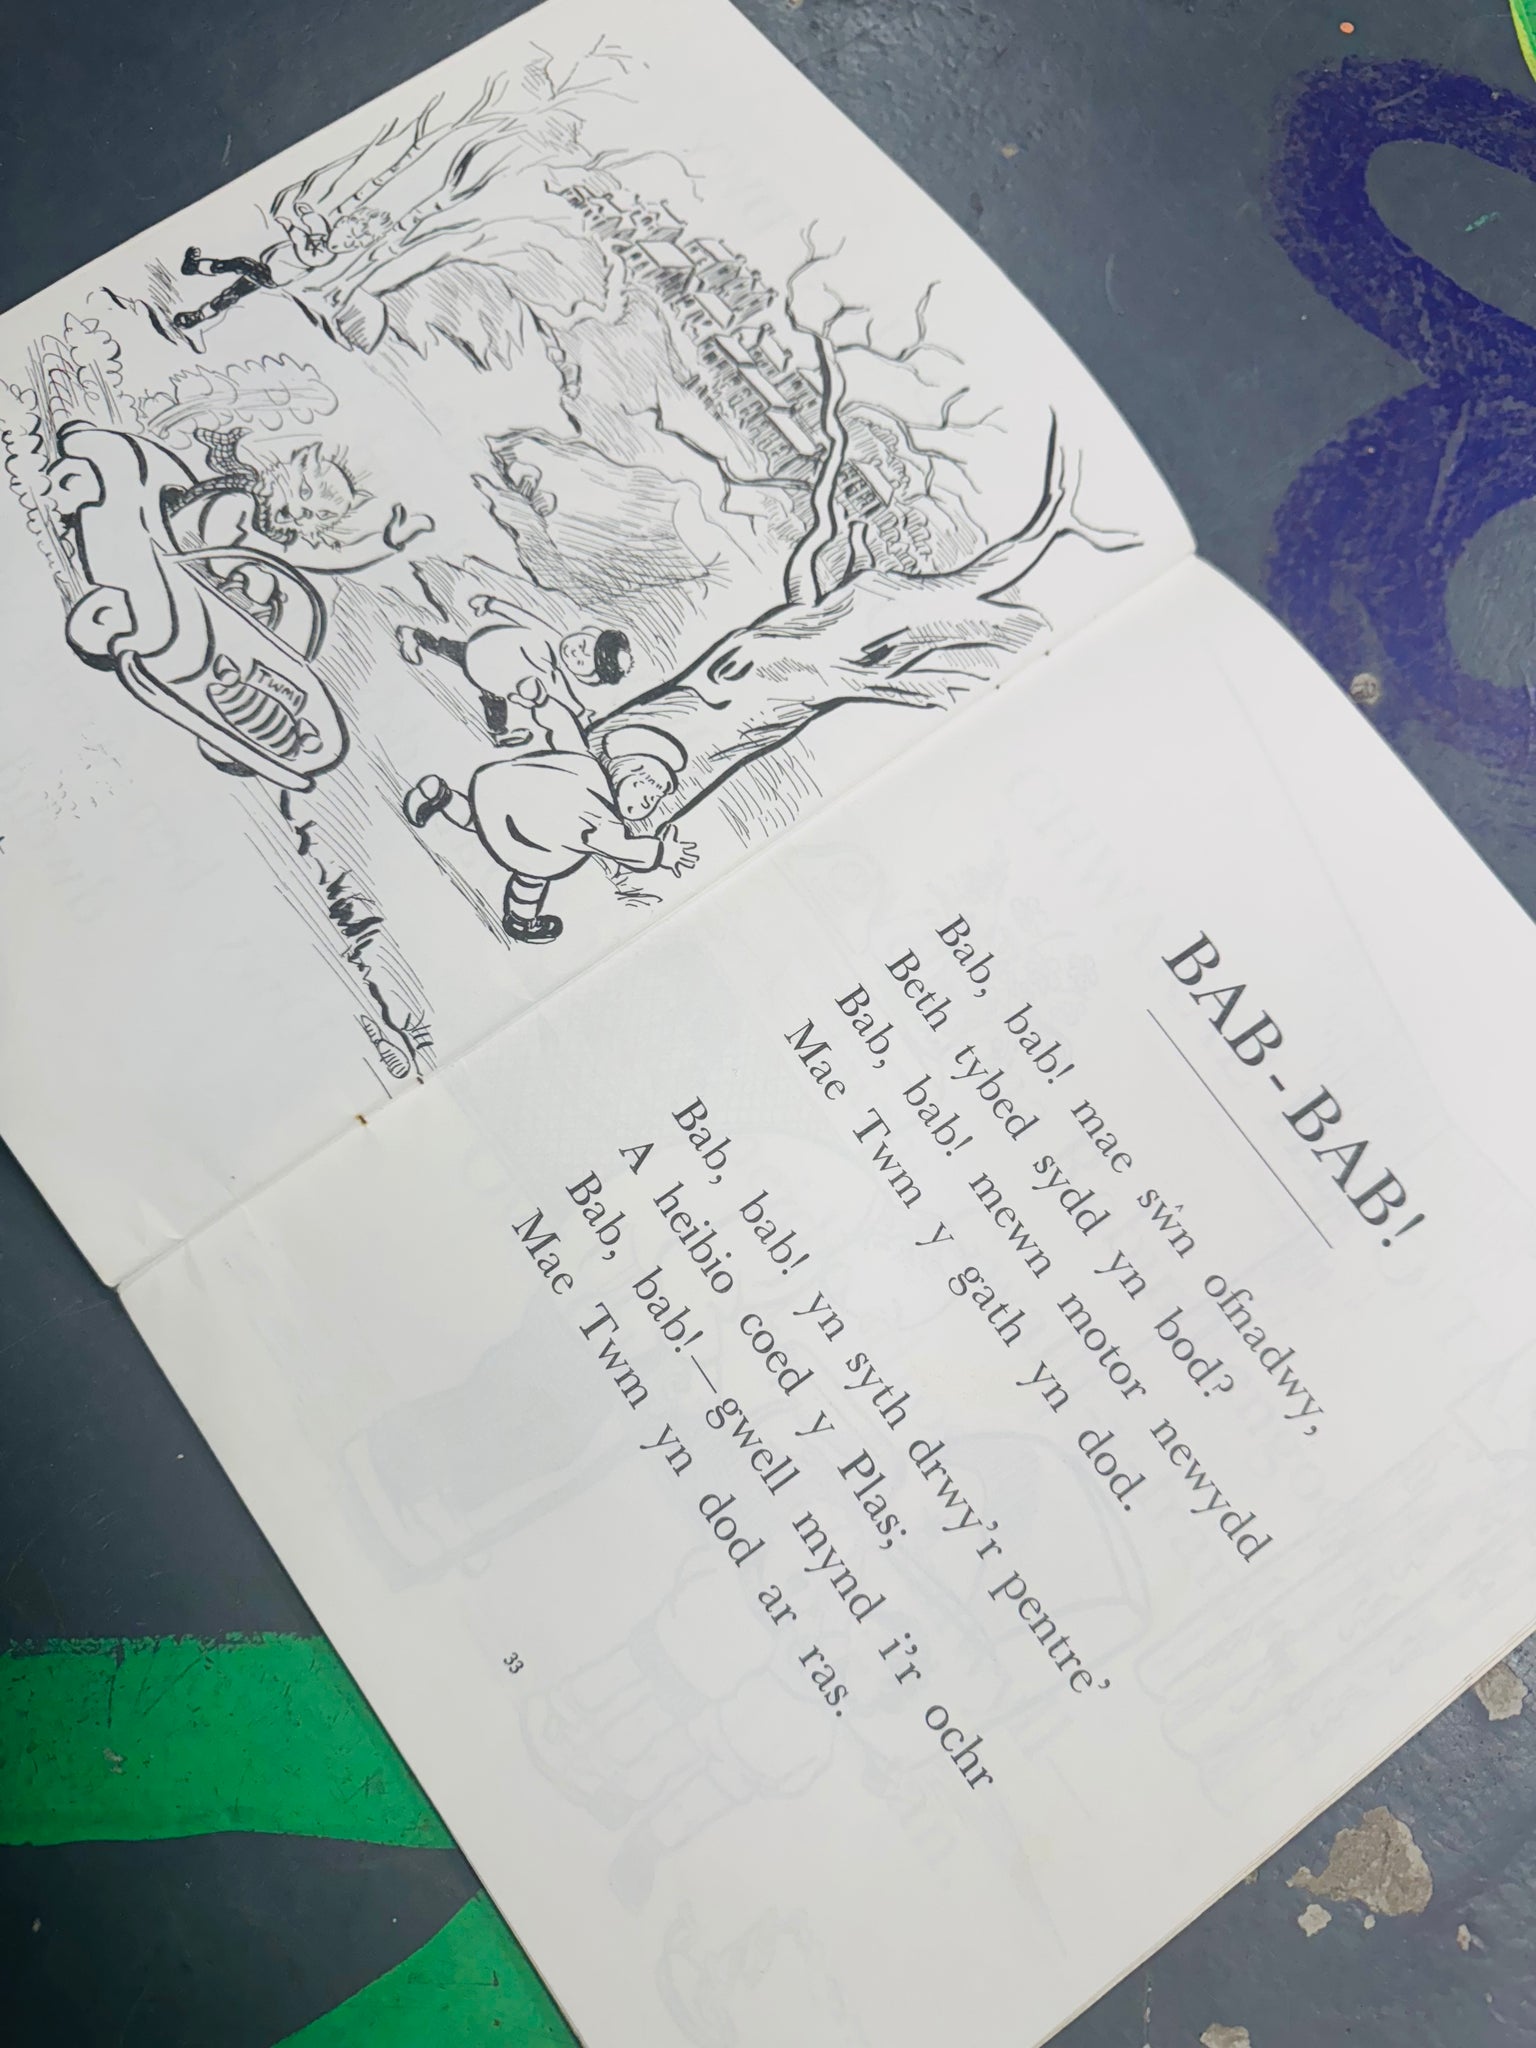 TWM1
BAB-BAB!
Bab, bab! mae sŵn ofnadwy,
Beth tybed sydd yn bod?
Bab, bab! mewn motor newydd
Mae Twm y gath yn dod.
Bab, bab! yn syth drwy'r pentre'
A heibio coed y Plas;
Bab, bab!—gwell mynd i'r ochr
Mae Twm yn dod ar ras.
33